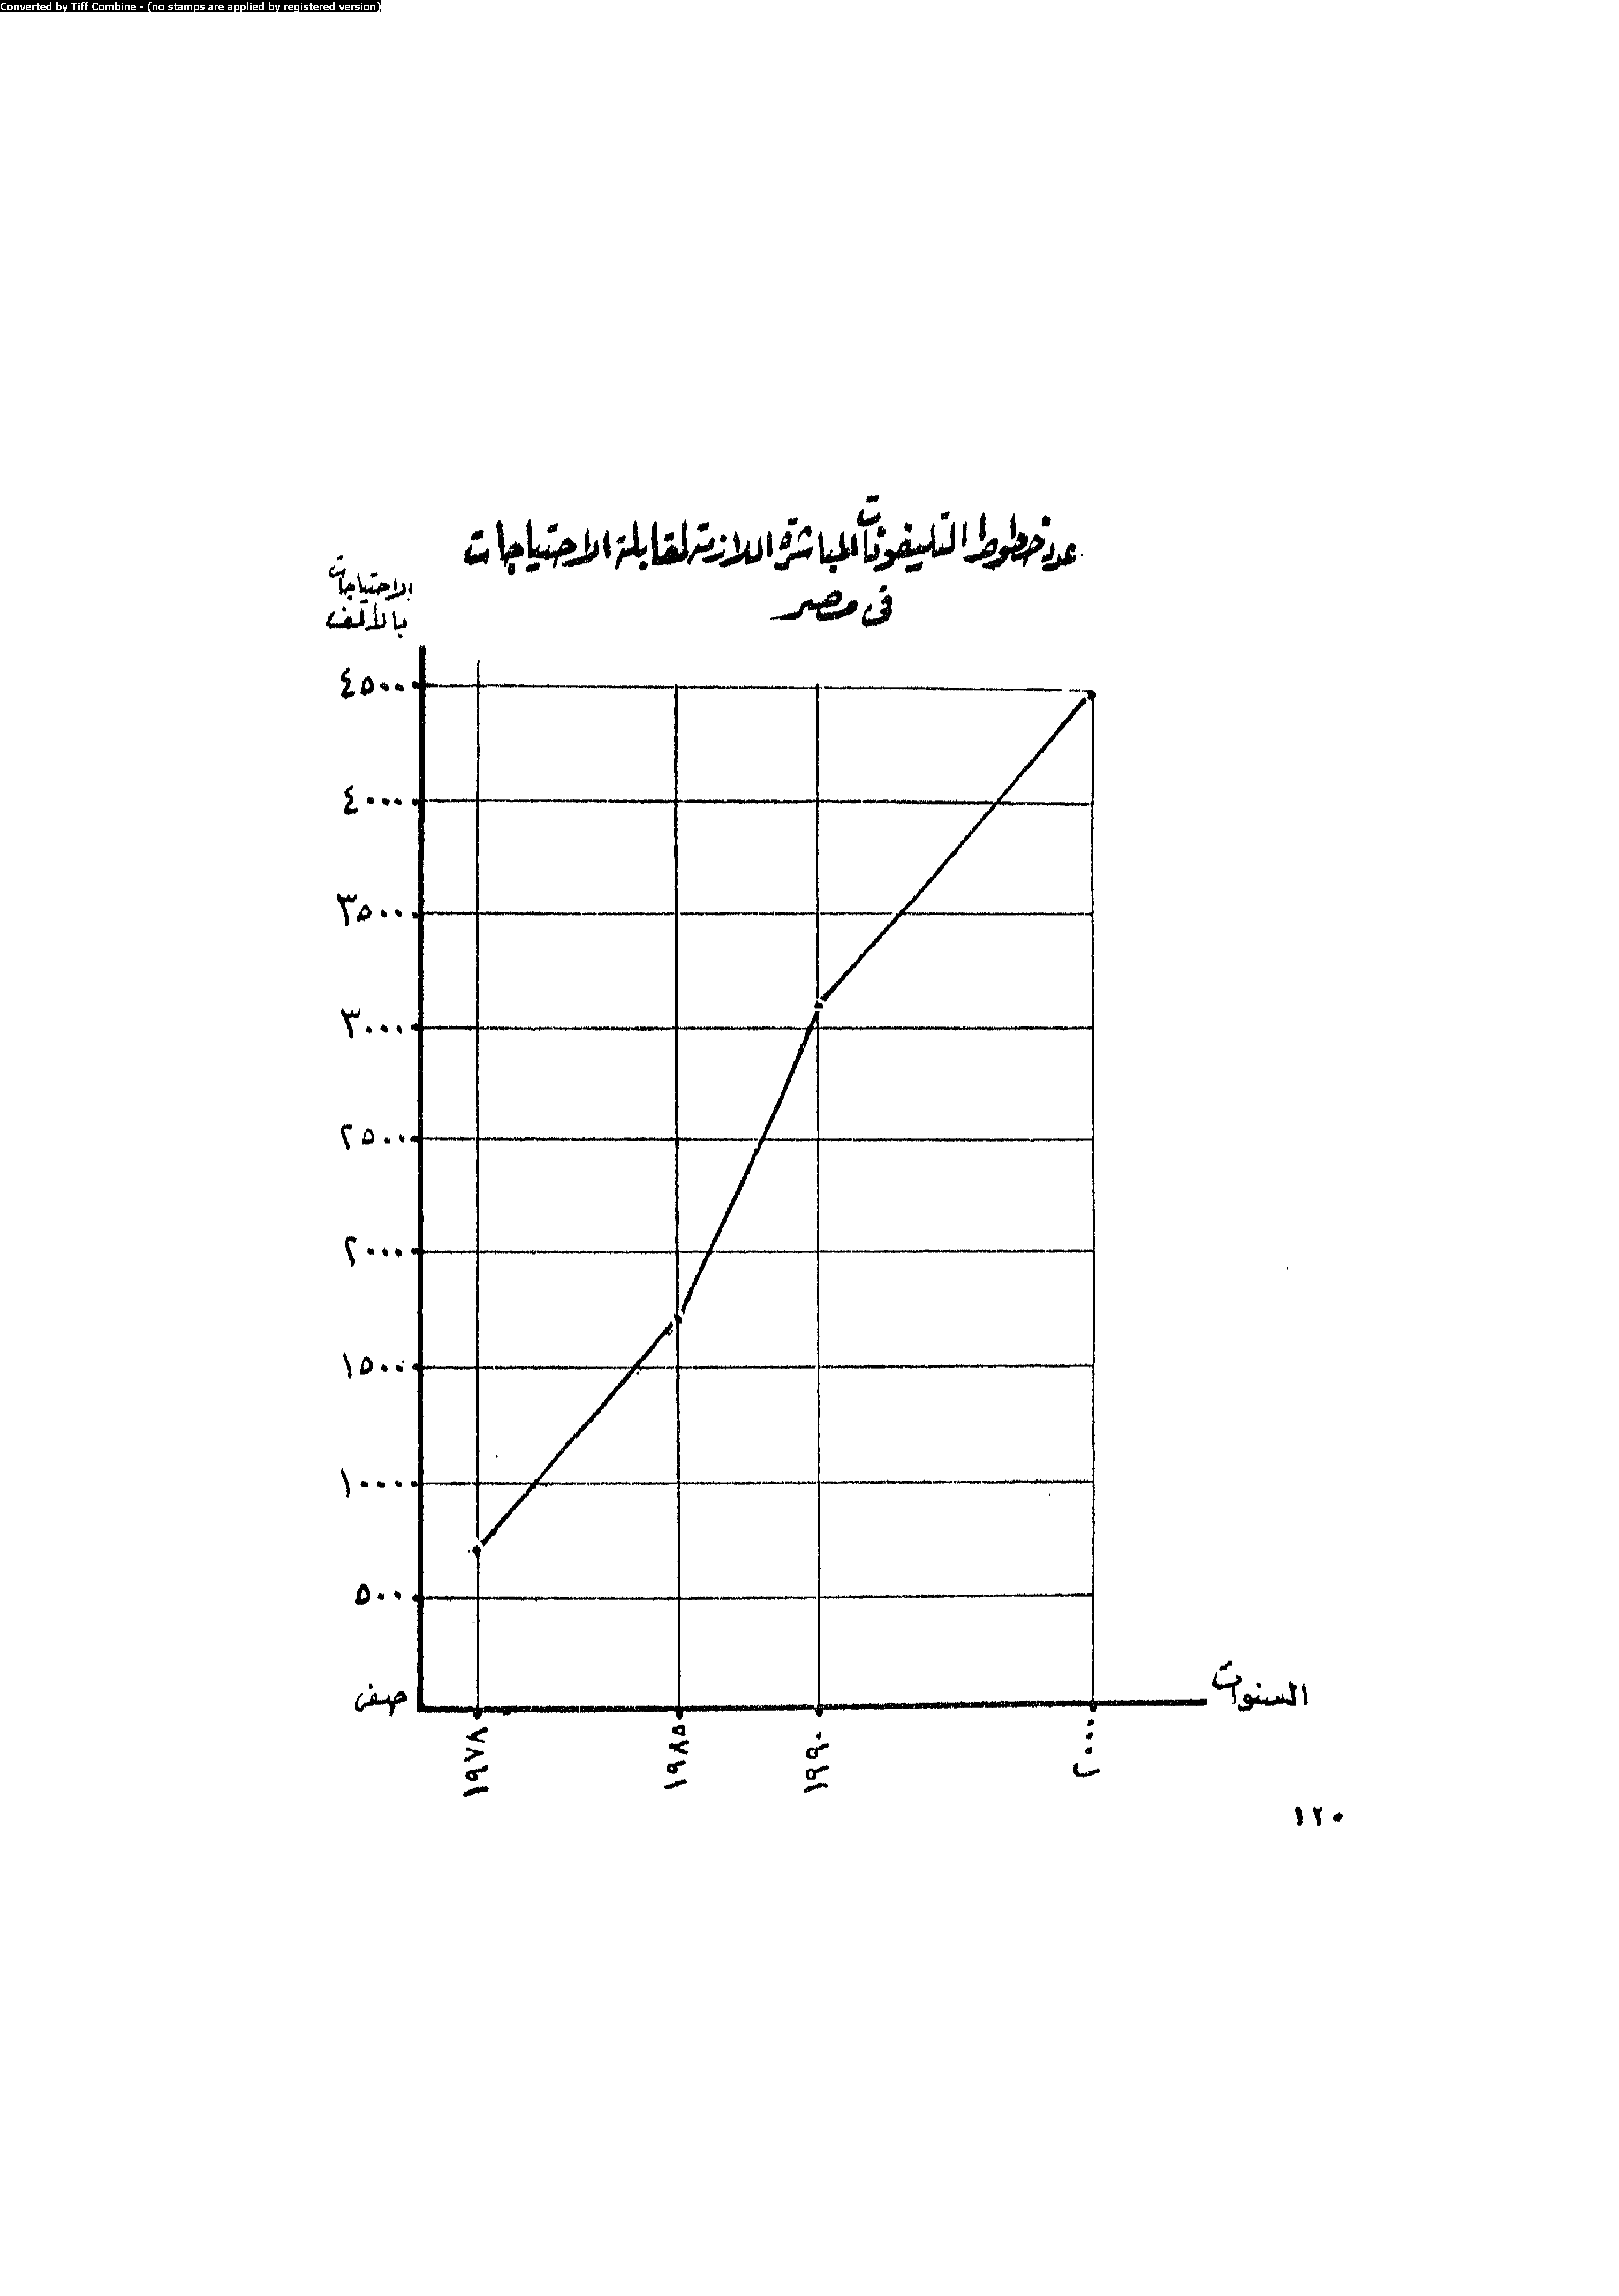 Converted by Tiff Combine - (no stamps are applied by registered version)
عدد خطوط التليفونات المباشرة اللازمة لمقابلة الاحتياجات
فى مصر
الاحتياجات
بالألف
٤٥٠٠
٤٠٠٠
٣٥٠٠
٣٠٠٠
٢٥٠٠
٢٠٠٠
١٥٠٠
١٠٠٠
٥٠٠
صفر
السنوات
١٩٧٨
١٩٨٥
١٩٩٠
٢٠٠٠
١٢٠